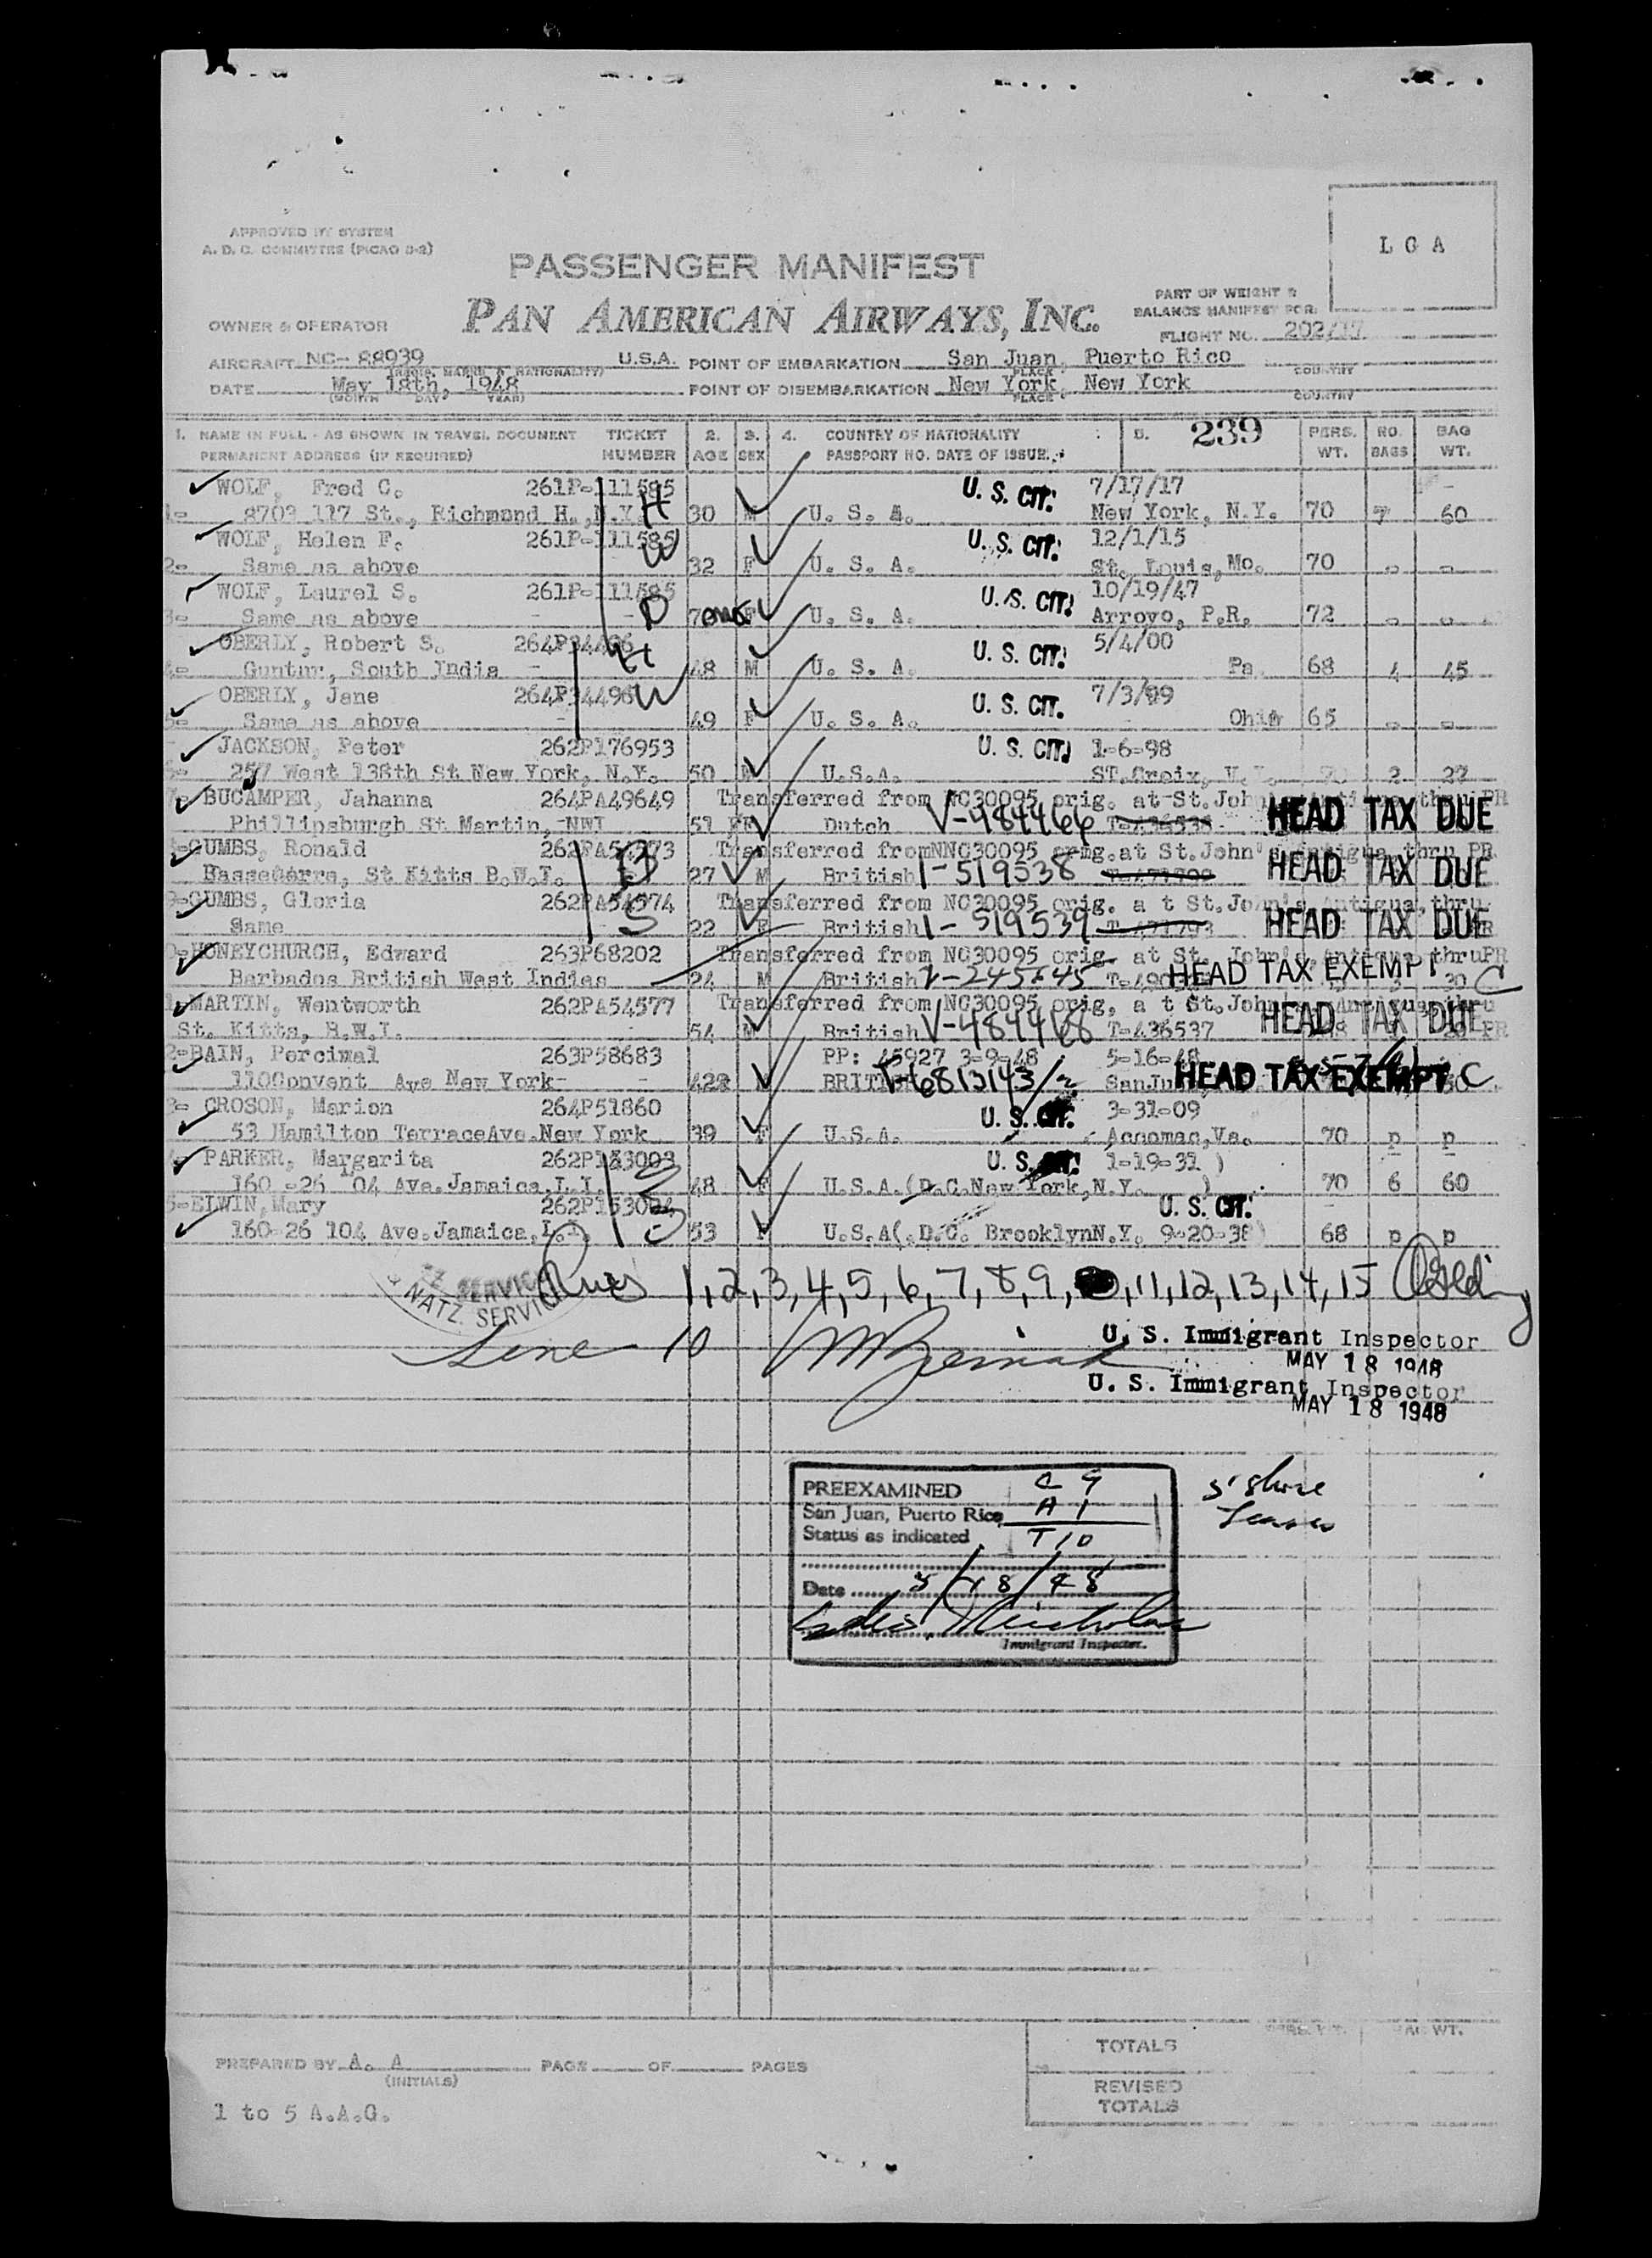 APPROVED BY SYSTEM
A. D. C. COMMITTEE (PICAO 3-2)
L G A
PASSENGER MANIFEST
PAN AMERICAN AIRWAYS, INC.
PART OF WEIGHT &
BALANCE MANIFEST FOR:
OWNER & OPERATOR
FLIGHT NO. 202/17
AIRCRAFT NC- 88939 U.S.A. POINT OF EMBARKATION San Juan, Puerto Rico
(REGIS. MARKS & NATIONALITY) PLACE COUNTRY
DATE May 18th, 1948 POINT OF DISEMBARKATION New York, New York
(MONTH DAY YEAR) PLACE COUNTRY
1. NAME IN FULL - AS SHOWN IN TRAVEL DOCUMENT TICKET 2. 3. 4. COUNTRY OF NATIONALITY 5. 239 PERS. NO. BAG
PERMANENT ADDRESS (IF REQUIRED) NUMBER AGE SEX PASSPORT NO. DATE OF ISSUE WT. BAGS WT.
WOLF, Fred C. 261P-111585 U. S. CIT. 7/17/17
1- 8703 117 St., Richmond H., N.Y. H 30 M U. S. A. New York, N.Y. 70 7 60
WOLF, Helen F. 261P-111585 U. S. CIT. 12/1/15
2- Same as above W 32 F U. S. A. St. Louis, Mo. 70 - -
WOLF, Laurel S. 261P-111585 U. S. CIT. 10/19/47
3- Same as above D 7 mos F U. S. A. Arroyo, P.R. 72 - -
OBERLY, Robert S. 264P34496 H U. S. CIT. 5/4/00
4- Guntur, South India 48 M U. S. A. Pa. 68 4 45
OBERLY, Jane 264P34496 W U. S. CIT. 7/3/99
5- Same as above 49 F U. S. A. Ohio 65 - -
JACKSON, Peter 262P176953 U. S. CIT. 1-6-98
6- 257 West 138th St New York, N.Y. 50 M U.S.A. ST.Croix, V.I. 70 2 27
7- BUCAMPER, Jahanna 264PA49649 Transferred from NC30095 orig. at St.John's Antigua thru PR
Phillipsburgh St Martin, NWI 51 F Dutch V-484466 T-436538 HEAD TAX DUE
8-GUMBS, Ronald 262PA54573 Transferred fromNNC30095 ormg.at St.John's Antigua thru PR
Basseterre, St Kitts B.W.I. B 27 M British I-519538 HEAD TAX DUE
9-GUMBS, Gloria 262PA54574 Transferred from NC30095 orig. a t St.John's Antigua, thru
Same S 22 F British I-519539 HEAD TAX DUE PR
0-HONEYCHURCH, Edward 263P68202 Transferred from NC30095 orig. at St. John's Antigua thruPR
Barbados British West Indies 24 M British V-245645 HEAD TAX EXEMPT 30 C
1-MARTIN, Wentworth 262PA54577 Transferred from NC30095 orig, a t St.John's Antigua, thru
St. Kitts, B.W.I. 54 M British V-484468 T-436537 HEAD TAX DUE PR
2-BAIN, Percimal 263P58683 PP: 45927 3-9-48 5-16-48
110Convent Ave New York 42 BRITISH V-6813143/2 HEAD TAX EXEMPT C
3- CROSON, Marion 264P51860 U. S. CIT. 3-31-09
53 Hamilton TerraceAve.New York 39 F U.S.A. Accomac,Va. 70 p p
4- PARKER, Margarita 262P153003 U. S. CIT. 1-19-31 )
160 -26 104 Ave.Jamaica,L.I. 48 F U.S.A.(D.C.New York,N.Y. ) 70 6 60
5-ELWIN,Mary 262P153004 U. S. CIT.
160-26 104 Ave.Jamaica,L.I. 53 F U.S.A(.D.C. BrooklynN.Y. 9-20-38) 68 p p
& NATZ. SERVICE
1,2,3,4,5,6,7,8,9, ,11,12,13,14,15
Line 10
U. S. Immigrant Inspector
MAY 18 1948
U. S. Immigrant Inspector
MAY 18 1948
PREEXAMINED C 9
San Juan, Puerto Rico A 1
Status as indicated T 10
Date 5/18/48
Immigrant Inspector.
TOTALS PERS. WT. BAG WT.
PREPARED BY A. A PAGE OF PAGES
(INITIALS)
REVISED
TOTALS
1 to 5 A.A.G.